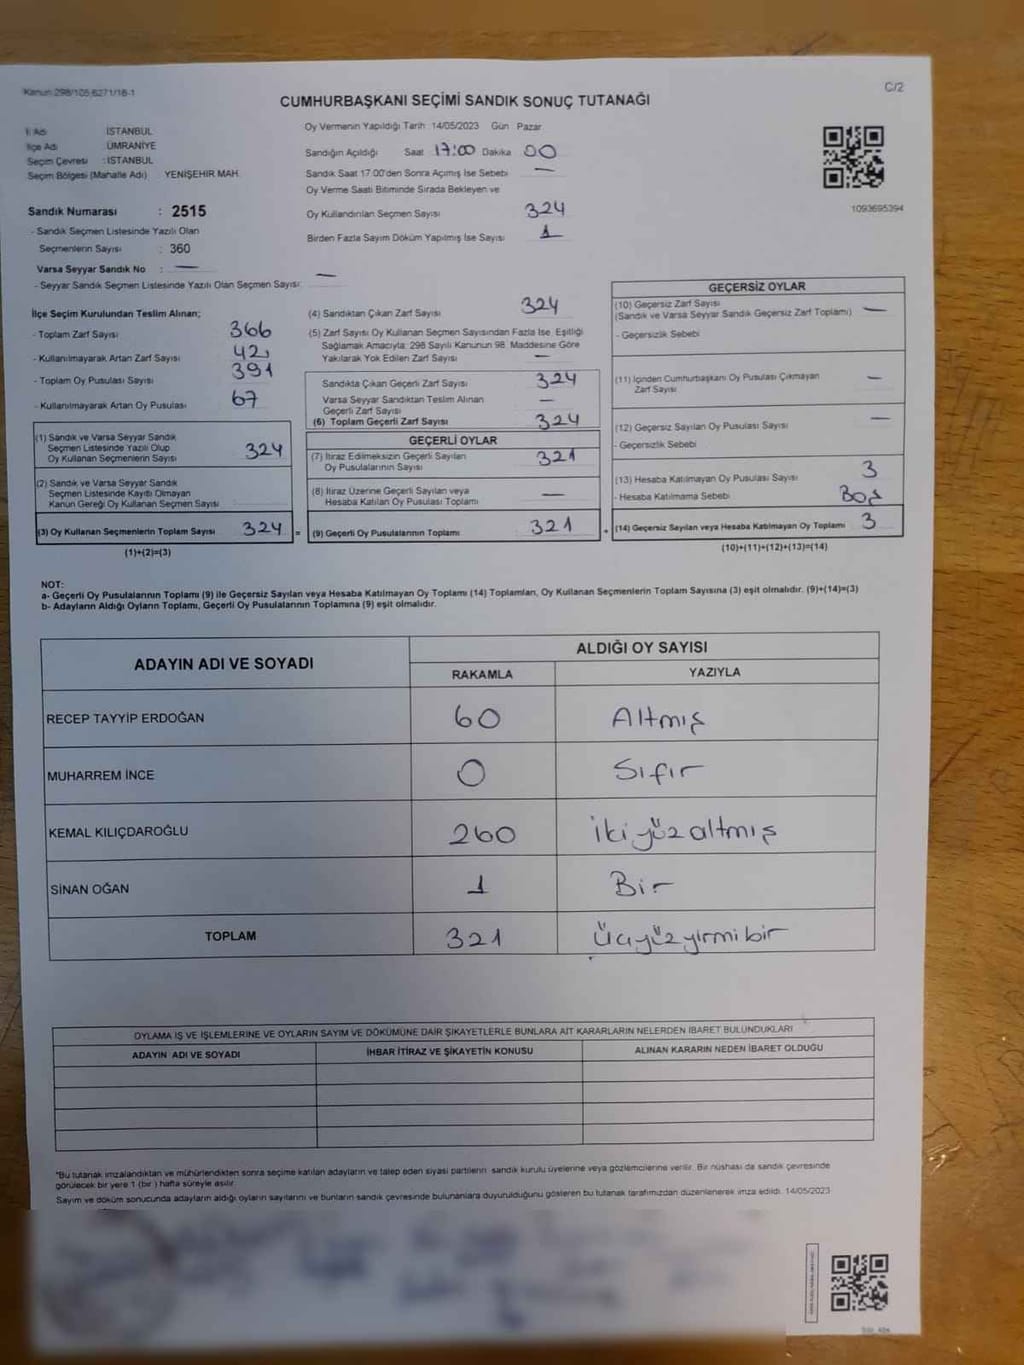 Kanun 298/105 6271/16-1
C/2
CUMHURBAŞKANI SEÇİMİ SANDIK SONUÇ TUTANAĞI
İl Adı İSTANBUL
İlçe Adı ÜMRANİYE
Seçim Çevresi : İSTANBUL
Seçim Bölgesi (Mahalle Adı) YENİŞEHİR MAH.
Oy Vermenin Yapıldığı Tarih 14/05/2023 Gün Pazar
Sandığın Açıldığı Saat 17:00 Dakika 00
Sandık Saat 17.00'den Sonra Açımış İse Sebebi —
Oy Verme Saati Bitiminde Sırada Bekleyen ve
Oy Kullandırılan Seçmen Sayısı 324
Birden Fazla Sayım Döküm Yapılmış İse Sayısı 1
1093695394
Sandık Numarası : 2515
- Sandık Seçmen Listesinde Yazılı Olan
Seçmenlerin Sayısı : 360
Varsa Seyyar Sandık No : —
- Seyyar Sandık Seçmen Listesinde Yazılı Olan Seçmen Sayısı: —
İlçe Seçim Kurulundan Teslim Alınan;
- Toplam Zarf Sayısı 366
- Kullanılmayarak Artan Zarf Sayısı 42
- Toplam Oy Pusulası Sayısı 391
- Kullanılmayarak Artan Oy Pusulası 67
(1) Sandık ve Varsa Seyyar Sandık
Seçmen Listesinde Yazılı Olup
Oy Kullanan Seçmenlerin Sayısı 324
(2) Sandık ve Varsa Seyyar Sandık
Seçmen Listesinde Kayıtlı Olmayan
Kanun Gereği Oy Kullanan Seçmen Sayısı
(3) Oy Kullanan Seçmenlerin Toplam Sayısı 324 =
(1)+(2)=(3)
(4) Sandıktan Çıkan Zarf Sayısı 324
(5) Zarf Sayısı Oy Kullanan Seçmen Sayısından Fazla İse, Eşitliği
Sağlamak Amacıyla; 298 Sayılı Kanunun 98. Maddesine Göre
Yakılarak Yok Edilen Zarf Sayısı —
Sandıkta Çıkan Geçerli Zarf Sayısı 324
Varsa Seyyar Sandıktan Teslim Alınan
Geçerli Zarf Sayısı —
(6) Toplam Geçerli Zarf Sayısı 324
GEÇERLİ OYLAR
(7) İtiraz Edilmeksizin Geçerli Sayılan
Oy Pusulalarının Sayısı 321
(8) İtiraz Üzerine Geçerli Sayılan veya
Hesaba Katılan Oy Pusulası Toplamı —
(9) Geçerli Oy Pusulalarının Toplamı 321 +
GEÇERSİZ OYLAR
(10) Geçersiz Zarf Sayısı
(Sandık ve Varsa Seyyar Sandık Geçersiz Zarf Toplamı) —
- Geçersizlik Sebebi
(11) İçinden Cumhurbaşkanı Oy Pusulası Çıkmayan
Zarf Sayısı —
(12) Geçersiz Sayılan Oy Pusulası Sayısı —
- Geçersizlik Sebebi
(13) Hesaba Katılmayan Oy Pusulası Sayısı 3
- Hesaba Katılmama Sebebi Boş
(14) Geçersiz Sayılan veya Hesaba Katılmayan Oy Toplamı 3
(10)+(11)+(12)+(13)=(14)
NOT:
a- Geçerli Oy Pusulalarının Toplamı (9) ile Geçersiz Sayılan veya Hesaba Katılmayan Oy Toplamı (14) Toplamları, Oy Kullanan Seçmenlerin Toplam Sayısına (3) eşit olmalıdır. (9)+(14)=(3)
b- Adayların Aldığı Oyların Toplamı, Geçerli Oy Pusulalarının Toplamına (9) eşit olmalıdır.
ADAYIN ADI VE SOYADI
ALDIĞI OY SAYISI
RAKAMLA YAZIYLA
RECEP TAYYİP ERDOĞAN 60 Altmış
MUHARREM İNCE 0 Sıfır
KEMAL KILIÇDAROĞLU 260 İkiyüzaltmış
SİNAN OĞAN 1 Bir
TOPLAM 321 Üçyüzyirmibir
OYLAMA İŞ VE İŞLEMLERİNE VE OYLARIN SAYIM VE DÖKÜMÜNE DAİR ŞİKAYETLERLE BUNLARA AİT KARARLARIN NELERDEN İBARET BULUNDUKLARI
ADAYIN ADI VE SOYADI İHBAR İTİRAZ VE ŞİKAYETİN KONUSU ALINAN KARARIN NEDEN İBARET OLDUĞU
*Bu tutanak imzalandıktan ve mühürlendikten sonra seçime katılan adayların ve talep eden siyasi partilerin sandık kurulu üyelerine veya gözlemcilerine verilir. Bir nüshası da sandık çevresinde
görülecek bir yere 1 (bir) hafta süreyle asılır.
Sayım ve döküm sonucunda adayların aldığı oyların sayılarını ve bunların sandık çevresinde bulunanlara duyurulduğunu gösteren bu tutanak tarafımızdan düzenlenerek imza edildi. 14/05/2023